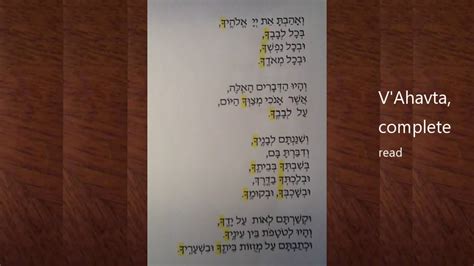 וְאָהַבְתָּ אֵת יְיָ אֱלֹהֶיךָ,
בְּכָל לְבָבְךָ,
וּבְכָל נַפְשְׁךָ,
וּבְכָל מְאֹדֶךָ.
וְהָיוּ הַדְּבָרִים הָאֵלֶּה,
אֲשֶׁר אָנֹכִי מְצַוְּךָ הַיּוֹם,
עַל לְבָבֶךָ.
וְשִׁנַּנְתָּם לְבָנֶיךָ,
וְדִבַּרְתָּ בָּם,
בְּשִׁבְתְּךָ בְּבֵיתֶךָ,
וּבְלֶכְתְּךָ בַדֶּרֶךְ,
וּבְשָׁכְבְּךָ, וּבְקוּמֶךָ.
וּקְשַׁרְתָּם לְאוֹת עַל יָדֶךָ,
וְהָיוּ לְטֹטָפֹת בֵּין עֵינֶיךָ,
וּכְתַבְתָּם עַל מְזֻזוֹת בֵּיתֶךָ וּבִשְׁעָרֶיךָ.
V'Ahavta,
complete
read